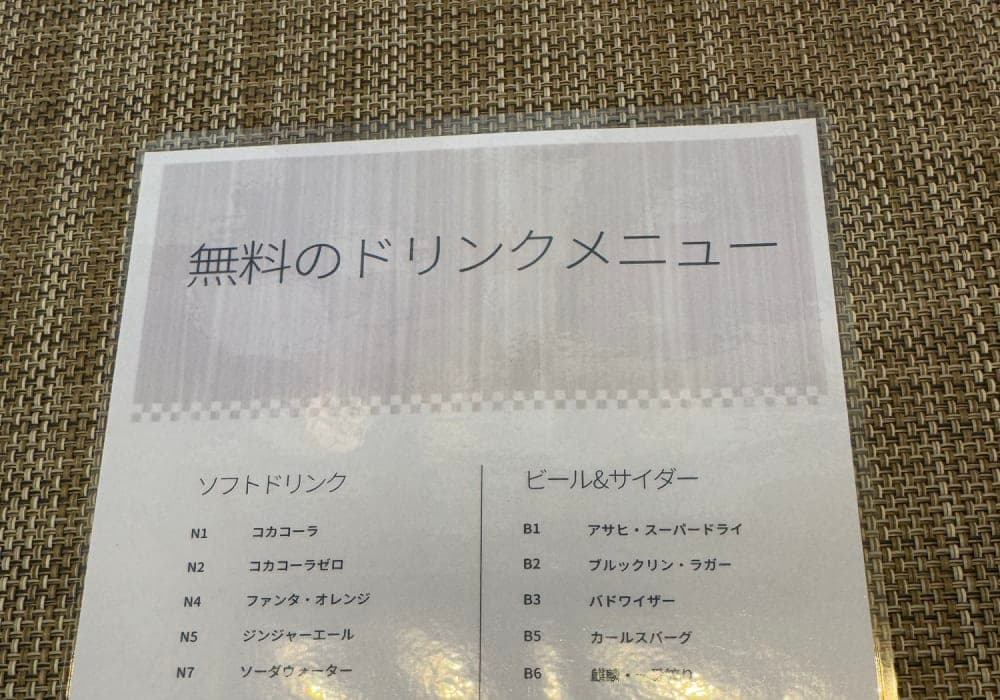 無料のドリンクメニュー
ソフトドリンク
N1 コカコーラ
N2 コカコーラゼロ
N4 ファンタ・オレンジ
N5 ジンジャーエール
N7 ソーダウォーター
ビール&サイダー
B1 アサヒ・スーパードライ
B2 ブルックリン・ラガー
B3 バドワイザー
B5 カールスバーグ
B6 麒麟・一番搾り